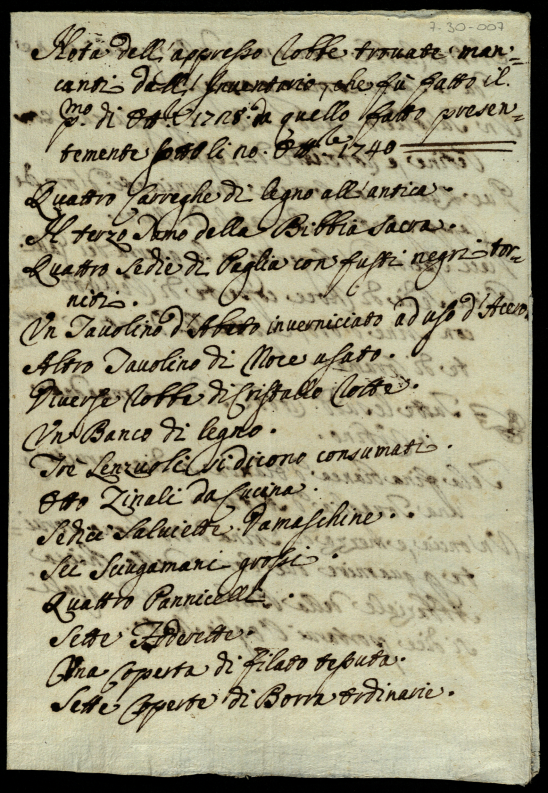 7-30-007
Nota dell'appresso Robbe trouate man=
canti dall'Inventario, che fù fatto il
p.mo di Ott.e 1728. da quello fatto presen=
temente sotto li no. Ott.bre 1740
Quattro Carreghe di legno all'antica.
Il terzo Tomo della Bibbia Sacra.
Quattro Sedie di Paglia con fusti negri tor=
niti.
Vn Tauolino d'Abeto inverniciato ad uso d'Acero.
Altro Tauolino di Noce usato.
Diverse Robbe di Cristallo Rotte.
Vn Banco di legno.
Tre Lenzuoli si dicono consumati.
Otto Zinali da Cucina.
Sedici Saluietti Damaschine.
Sei Sciugamani grossi.
Quattro Pannicelli.
Sette Foderette.
Vna Coperta di filato tessuta.
Sette Coperte di Borra Ordinarie.